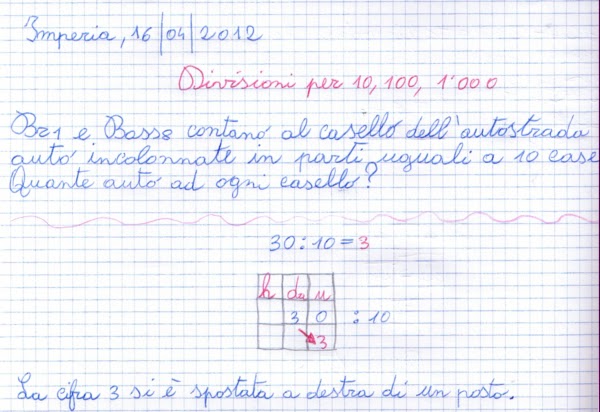 Imperia, 16/04/2012
Divisioni per 10, 100, 1'000
e contano al casello dell'autostrada
auto incolonnate in parti uguali a 10 case
Quante auto ad ogni casello?
30:10=3
h da u
3 0 :10
3
La cifra 3 si è spostata a destra di un posto.